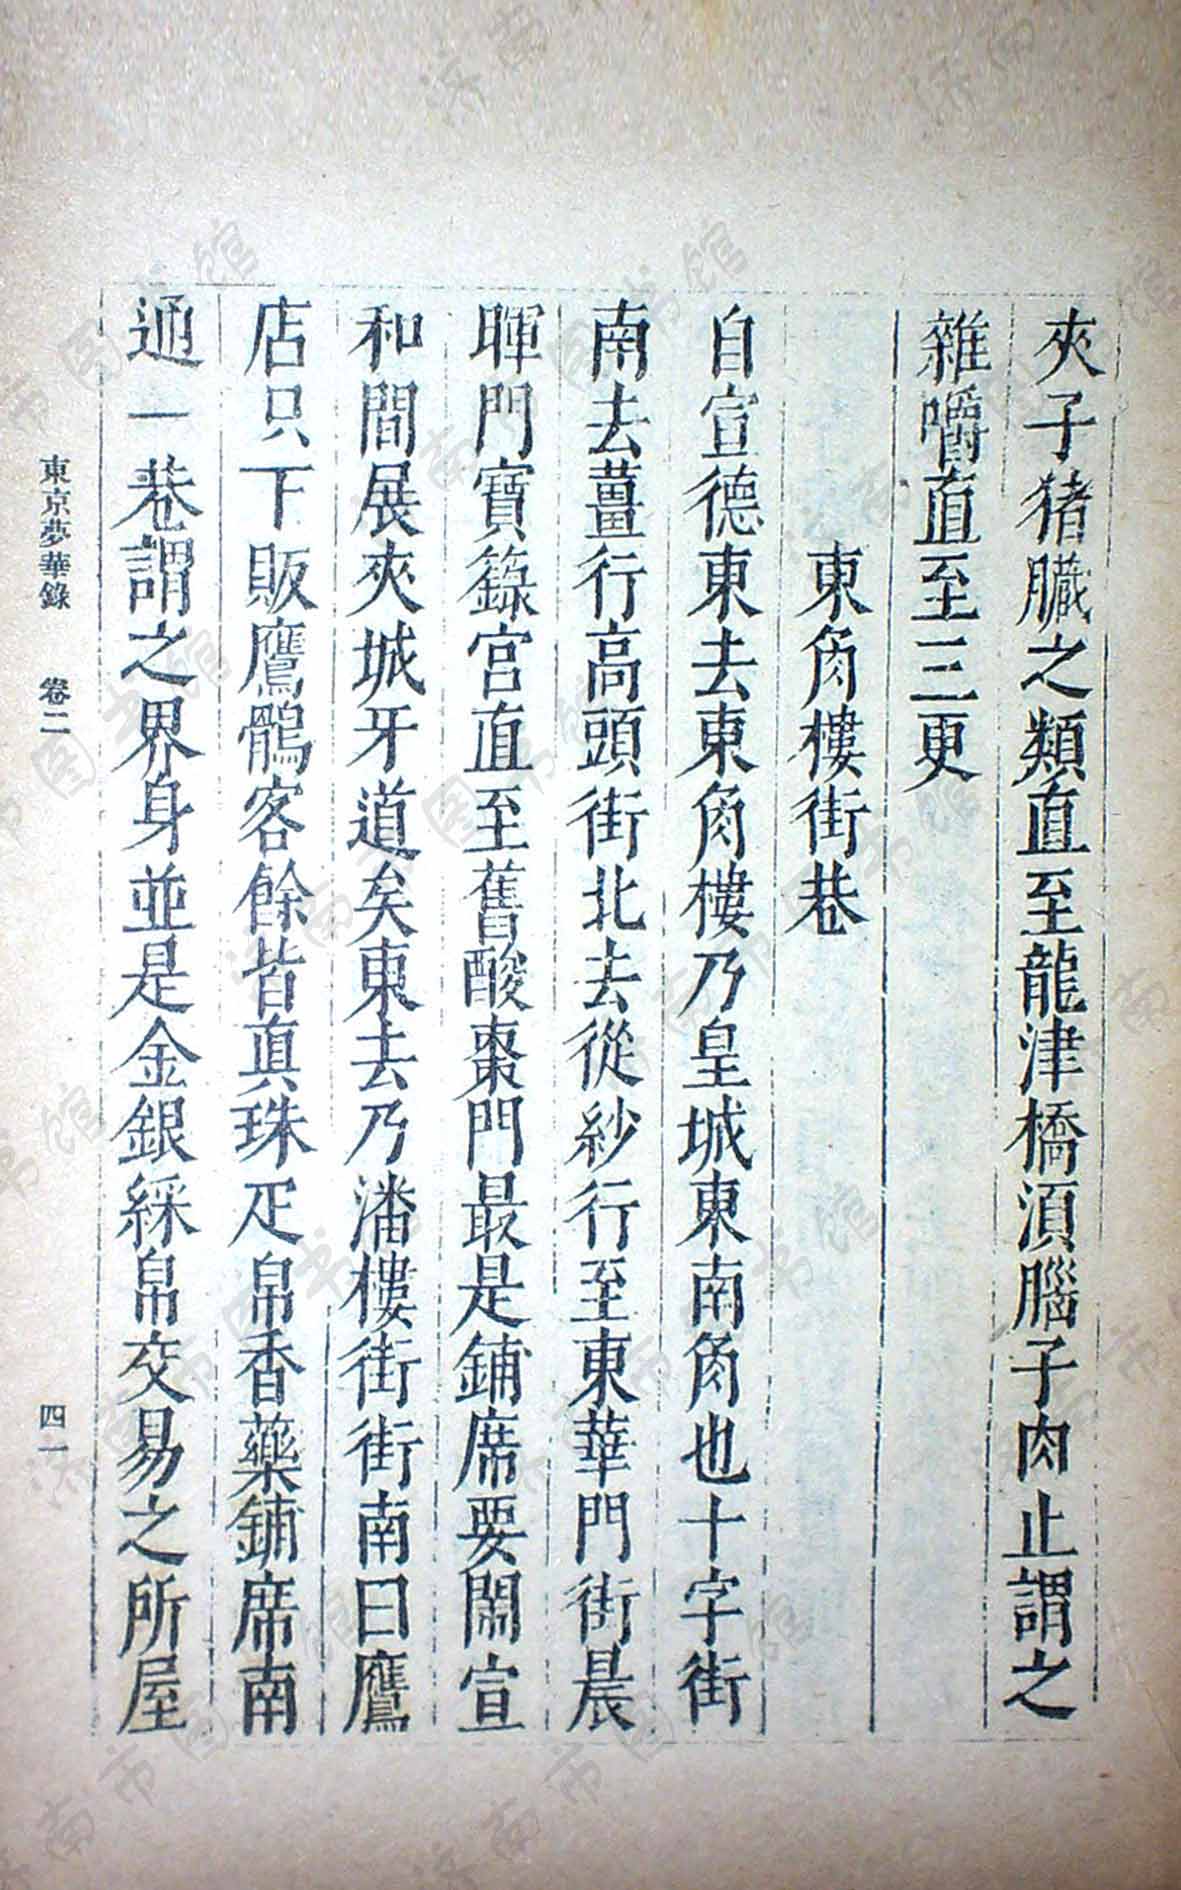 夾子猪臓之類直至龍津橋湏腦子肉止謂之
雜嚼直至三更
東角樓街巷
自宣德東去東角樓乃皇城東南角也十字街
南去薑行高頭街北去從紗行至東華門街晨
暉門寶籙宮直至舊酸棗門最是鋪席要鬧宣
和間展夾城牙道矣東去乃潘樓街街南曰鷹
店只下販鷹鶻客餘皆真珠疋帛香藥鋪席南
通一巷謂之界身並是金銀綵帛交易之所屋
東京夢華錄 卷二 四一
济南市图书馆